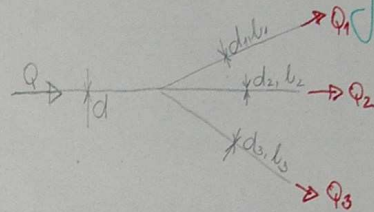 Q₁
d₁, l₁
Q
d₂, l₂
Q₂
d
d₃, l₃
Q₃